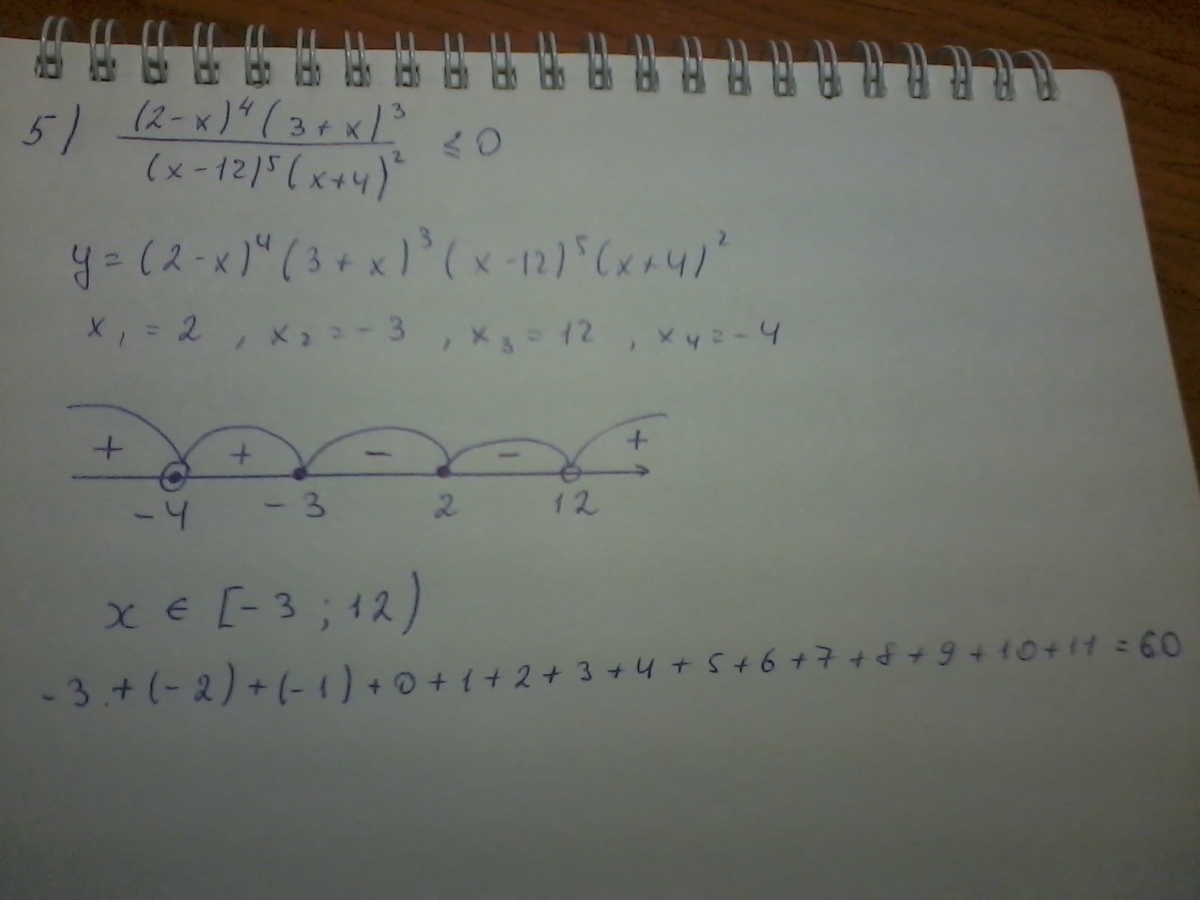 5) (2-x)⁴(3+x)³ / (x-12)⁵(x+4)² ≤ 0
y = (2-x)⁴(3+x)³(x-12)⁵(x+4)²
x₁ = 2, x₂ = -3, x₃ = 12, x₄ = -4
+ + - - +
-4 -3 2 12
x ∈ [-3; 12)
-3 + (-2) + (-1) + 0 + 1 + 2 + 3 + 4 + 5 + 6 + 7 + 8 + 9 + 10 + 11 = 60